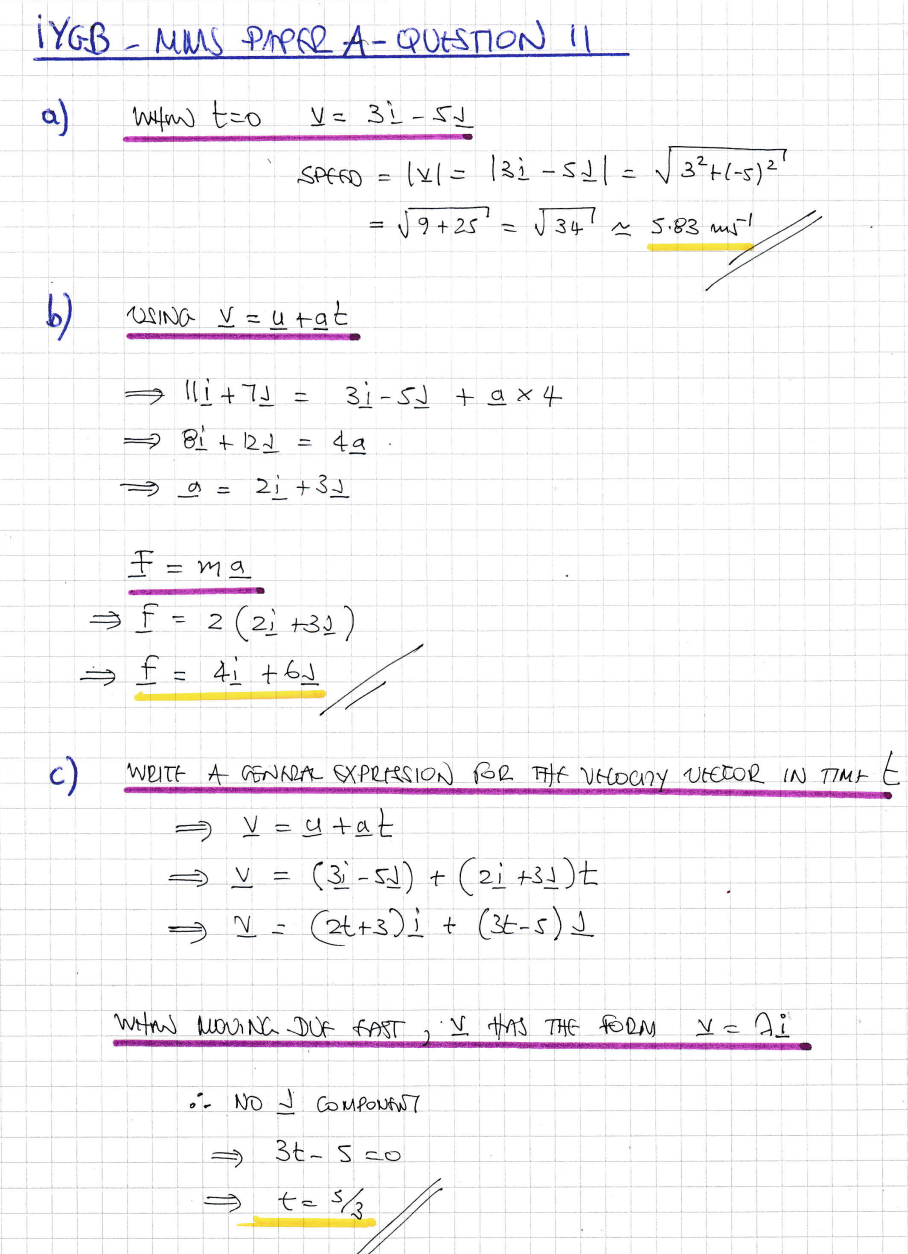 IYGB - MMS PAPER A - QUESTION 11
a) WHEN t=0 v = 3i - 5j
SPEED = |v| = |3i - 5j| = √(3²+(-5)²)
= √(9+25) = √34 ≈ 5.83 ms⁻¹
b) USING v = u + at
⟹ 11i + 7j = 3i - 5j + a × 4
⟹ 8i + 12j = 4a
⟹ a = 2i + 3j
F = ma
⟹ F = 2(2i + 3j)
⟹ F = 4i + 6j
c) WRITE A GENERAL EXPRESSION FOR THE VELOCITY VECTOR IN TIME t
⟹ v = u + at
⟹ v = (3i - 5j) + (2i + 3j)t
⟹ v = (2t+3)i + (3t-5)j
WHEN MOVING DUE EAST, v HAS THE FORM v = λi
∴ NO j COMPONENT
⟹ 3t - 5 = 0
⟹ t = 5/3